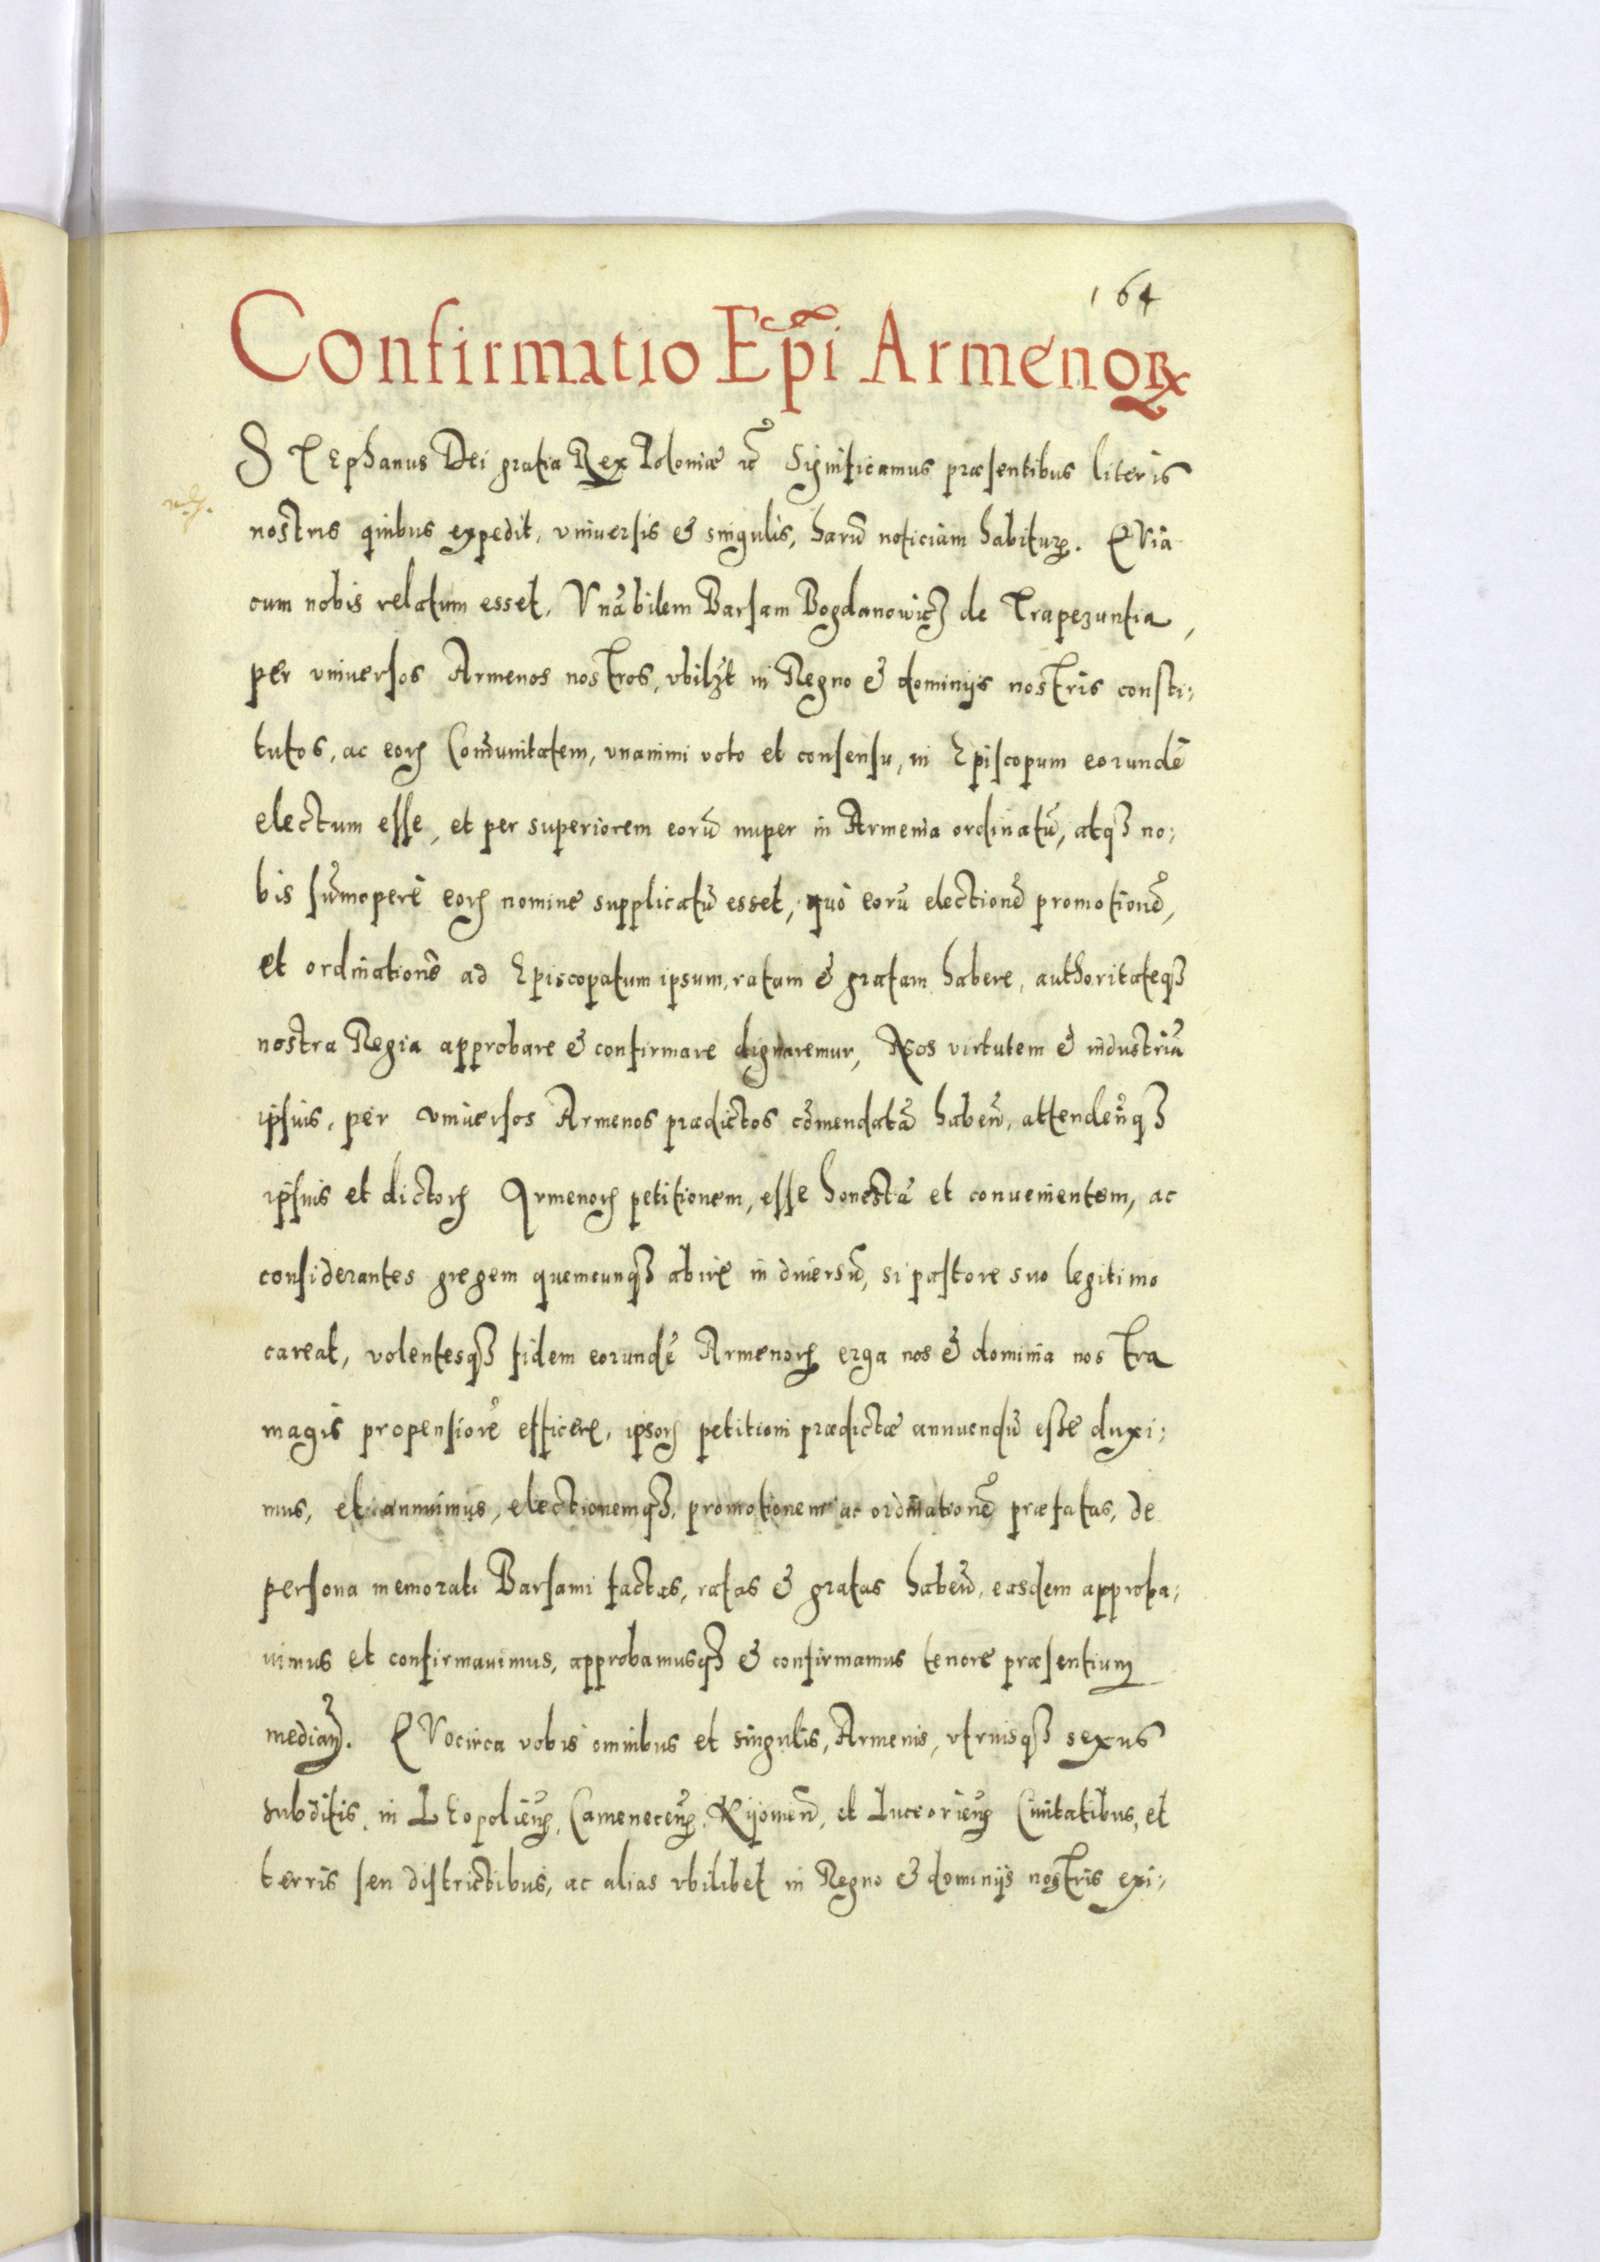 164
Confirmatio Ep̃i Armenoꝝ
STEphanus Dei gratia Rex Poloniæ ꝛc̃ Significamus præsentibus literis
nostris quibus expedit, vniuersis & singulis, harũ noticiam habiturꝭ. QVia
cum nobis relatum esset, Vnãbilem Barsam Bogdanowicz de Trapezuntia,
per vniuersos Armenos nostros, vbilꝫt in Regno & dominijs nostris consti:
tutos, ac eoꝝ Com̃unitatem, vnanimi voto et consensu, in Episcopum eorundẽ
electum esse, et per superiorem eorũ nuper in Armenia ordinatũ, atqꝫ no:
bis sum̃operè eoꝝ nomine supplicatũ esset, quò eorũ electionẽ promotionẽ,
et ordinationẽ ad Episcopatum ipsum, ratam & gratam habere, authoritateqꝫ
nostra Regia approbare & confirmare dignaremur, Nos virtutem & industriã
ipsius, per vniuersos Armenos prædictos com̃endatã haben̄, attenden̄qꝫ
ipsius et dictoꝝ Armenoꝝ petitionem, esse honestã et conuenientem, ac
considerantes gregem quemcunqꝫ abire in diuersũ, si pastore suo legitimo
careat, volentesqꝫ fidem eorundẽ Armenoꝝ erga nos & dominia nostra
magis propensiorẽ efficere, ipsoꝝ petitioni prædictæ annuendũ esse duxi:
mus, et annuimus, electionemqꝫ, promotionem ac ordinationẽ præfatas, de
persona memorati Barsami factas, ratas & gratas haben̄, easdem approba:
uimus et confirmauimus, approbamusqꝫ & confirmamus tenore præsentium
median̄. QVocirca vobis omnibus et singulis, Armenis, vtriusqꝫ sexus
subditis, in LEopolien̄, Camenecen̄, Kijouien̄, et Luceorien̄ Ciuitatibus, et
terris seu districtibus, ac alias vbilibet in Regno & dominijs nostris exi: